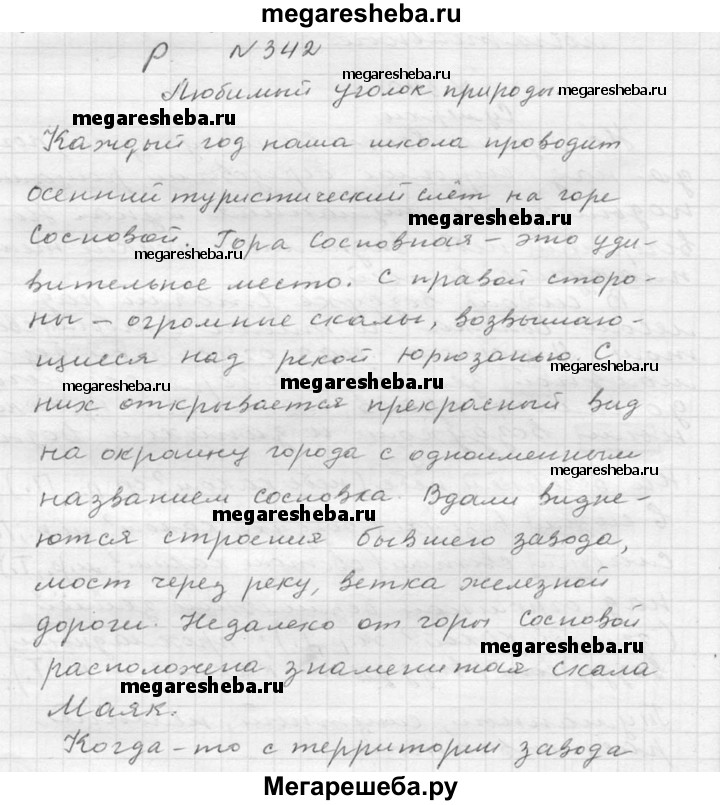 megaresheba.ru
Р N 342
megaresheba.ru
Любимый уголок природы
megaresheba.ru
megaresheba.ru
Каждый год наша школа проводит
осенний туристический слёт на горе
megaresheba.ru
Сосновой. Гора Сосновная – это уди-
megaresheba.ru
вительное место. С правой сторо-
ны – огромные скалы, возвышаю-
щиеся над рекой Юрюзанью. С
megaresheba.ru
megaresheba.ru
megaresheba.ru
них открывается прекрасный вид
на окраину города с одноименным
megaresheba.ru
названием Сосновка. Вдали видне-
megaresheba.ru
ются строения бывшего завода,
мост через реку, ветка железной
дороги. Недалеко от горы Сосновой
megaresheba.ru
расположена знаменитая скала
megaresheba.ru
Маяк.
Когда-то с территории завода
Мегарешеба.ру